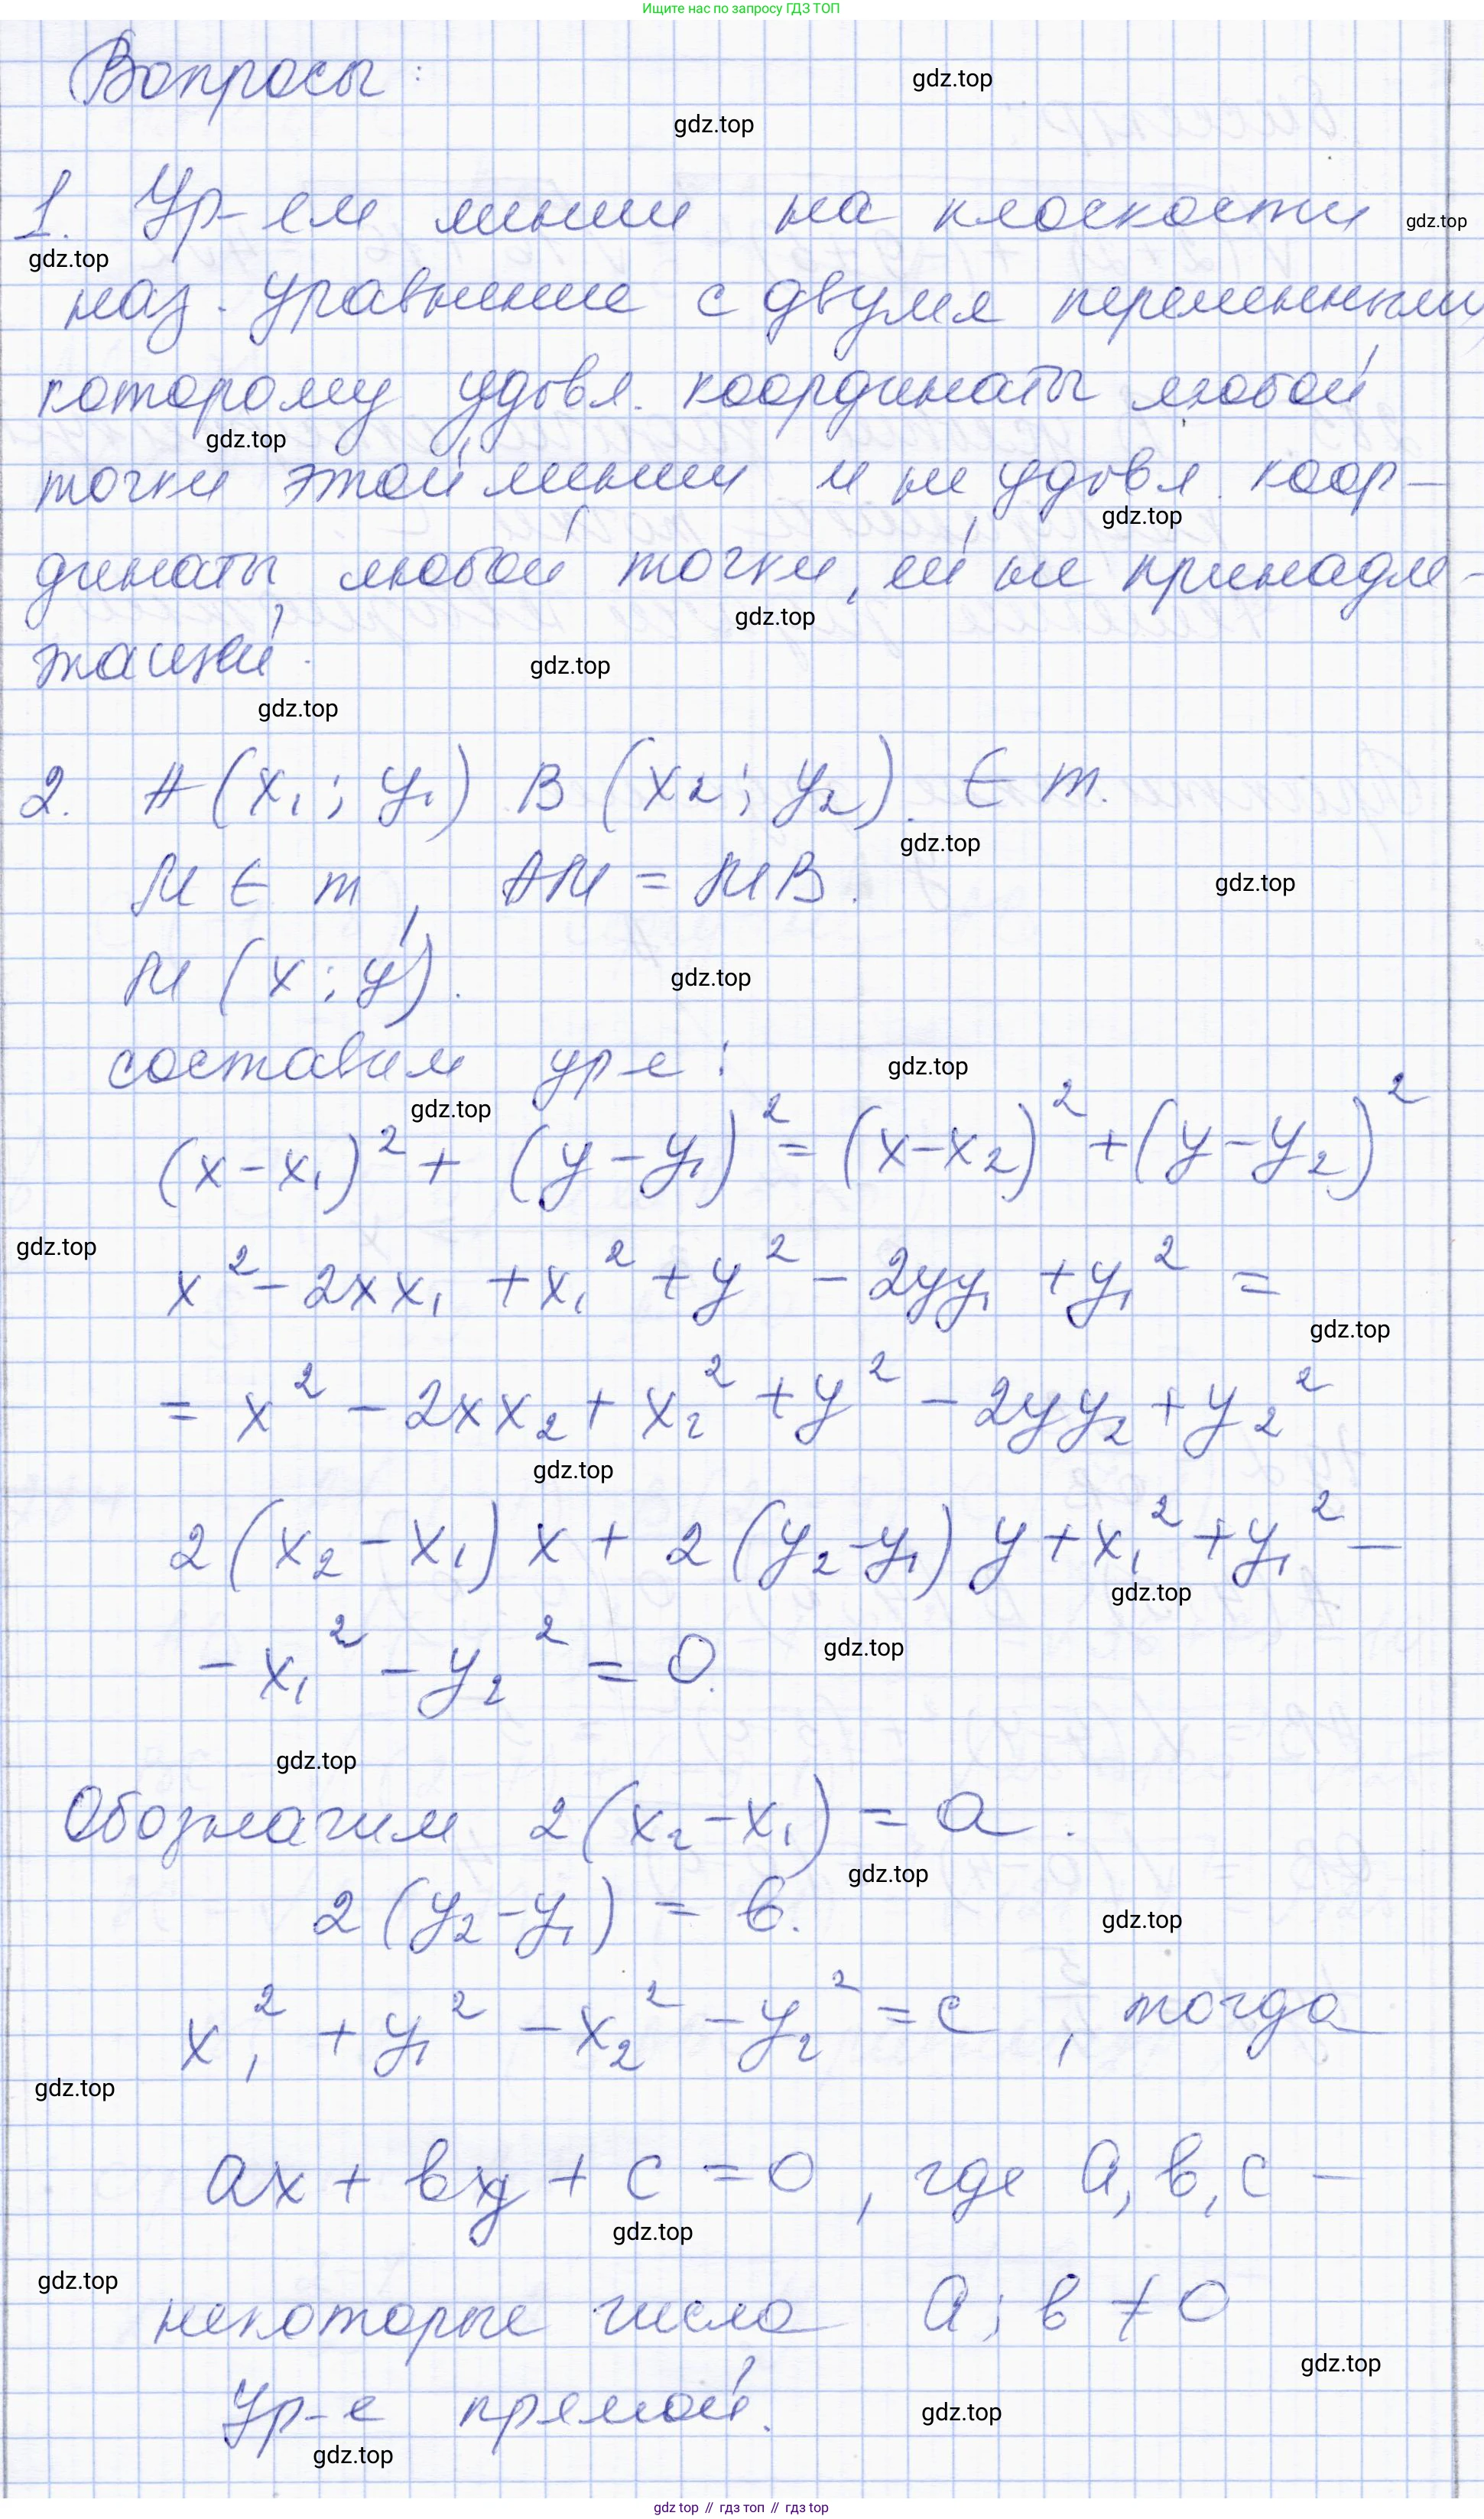 Ищите нас по запросу ГДЗ ТОП
Вопросы:
gdz.top
gdz.top
1. Ур-ем линии на плоскости
gdz.top
gdz.top
наз. уравнение с двумя переменными,
которому удовл. координаты любой
gdz.top
точки этой линии и не удовл. коор-
gdz.top
динаты любой точки, ей не принадле-
gdz.top
жащей.
gdz.top
gdz.top
2. A(x₁; y₁) B(x₂; y₂). ∈ m.
gdz.top
M ∈ m, AM = MB.
gdz.top
M(x; y).
gdz.top
составим ур-е:
gdz.top
gdz.top
(x-x₁)² + (y-y₁)² = (x-x₂)² + (y-y₂)²
gdz.top
x² - 2xx₁ + x₁² + y² - 2yy₁ + y₁² =
gdz.top
= x² - 2xx₂ + x₂² + y² - 2yy₂ + y₂²
gdz.top
2(x₂-x₁)x + 2(y₂-y₁)y + x₁² + y₁² -
gdz.top
- x₁² - y₂² = 0.
gdz.top
gdz.top
Обозначим 2(x₂-x₁) = a.
gdz.top
2(y₂-y₁) = в.
gdz.top
x₁² + y₁² - x₂² - y₂² = c, тогда
gdz.top
ax + вy + c = 0, где a, в, c -
gdz.top
gdz.top
некоторые числа a; в ≠ 0
gdz.top
Ур-е прямой.
gdz.top
gdz.top
gdz top // гдз топ // гдз top